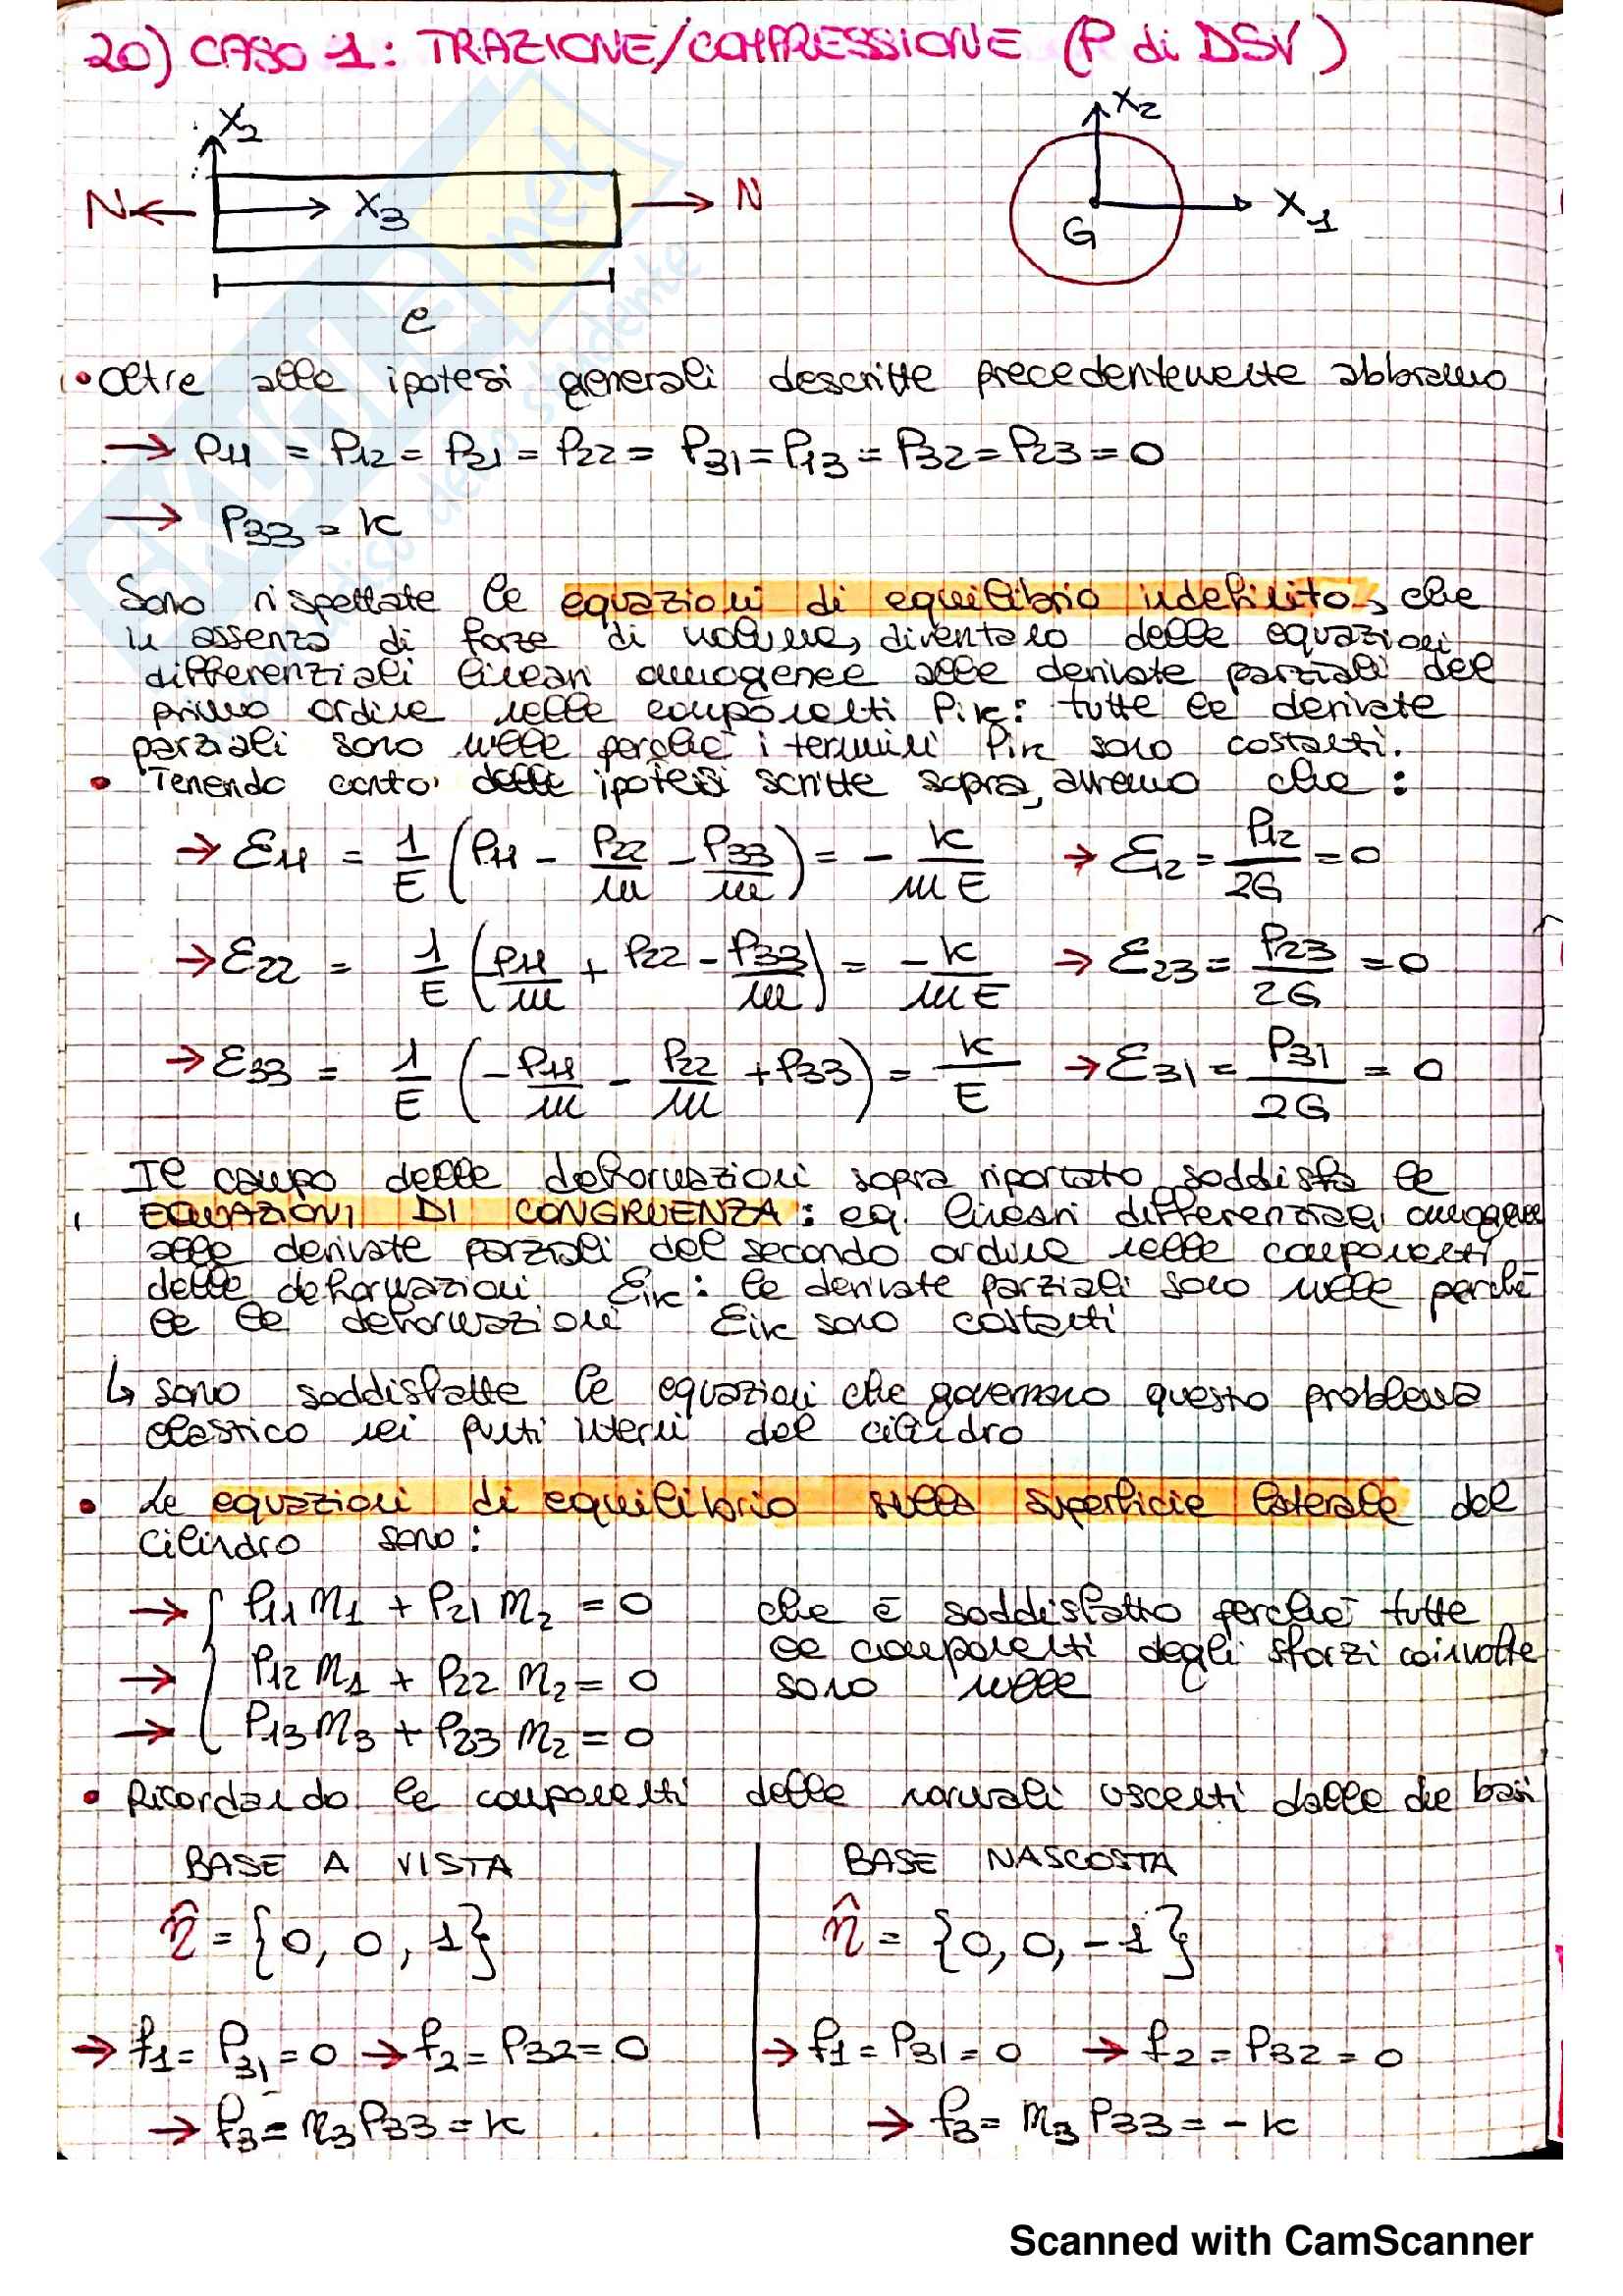 20) CASO 1: TRAZIONE/COMPRESSIONE (P di DSV)
X2
X2
N
X3
N
X1
G
l
• Oltre alle ipotesi generali descritte precedentemente abbiamo
→ P11 = P12 = P21 = P22 = P31 = P13 = P32 = P23 = 0
→ P33 = K
Sono rispettate le equazioni di equilibrio indefinito, che
in assenza di forze di volume, diventano delle equazioni
differenziali lineari omogenee alle derivate parziali del
primo ordine nelle componenti Pik: tutte le derivate
parziali sono nulle perché i termini Pik sono costanti.
• Tenendo conto delle ipotesi scritte sopra, avremo che:
→ ε11 = 1/E (P11 - P22/m - P33/m) = - K/mE → ε12 = P12/2G = 0
→ ε22 = 1/E (P11/m + P22 - P33/m) = -K/mE → ε23 = P23/2G = 0
→ ε33 = 1/E (-P11/m - P22/m + P33) = K/E → ε31 = P31/2G = 0
Il campo delle deformazioni sopra riportato soddisfa le
EQUAZIONI DI CONGRUENZA: eq. lineari differenziali omogenee
alle derivate parziali del secondo ordine nelle componenti
delle deformazioni εik: le derivate parziali sono nulle perché
le le deformazioni εik sono costanti
↳ sono soddisfatte le equazioni che governano questo problema
elastico nei punti interni del cilindro
• Le equazioni di equilibrio sulla superficie laterale del
cilindro sono:
→ { P11 n1 + P21 n2 = 0 che è soddisfatto perché tutte
le componenti degli sforzi coinvolte
→ P12 n1 + P22 n2 = 0 sono nulle
→ P13 n3 + P23 n2 = 0
• Ricordando le componenti delle normali uscenti dalle due basi
BASE A VISTA
BASE NASCOSTA
n̂ = {0, 0, 1}
n̂ = {0, 0, -1}
→ f1 = P31 = 0 → f2 = P32 = 0
→ f1 = P31 = 0 → f2 = P32 = 0
→ f3 = n3 P33 = K
→ f3 = n3 P33 = - K
Scanned with CamScanner